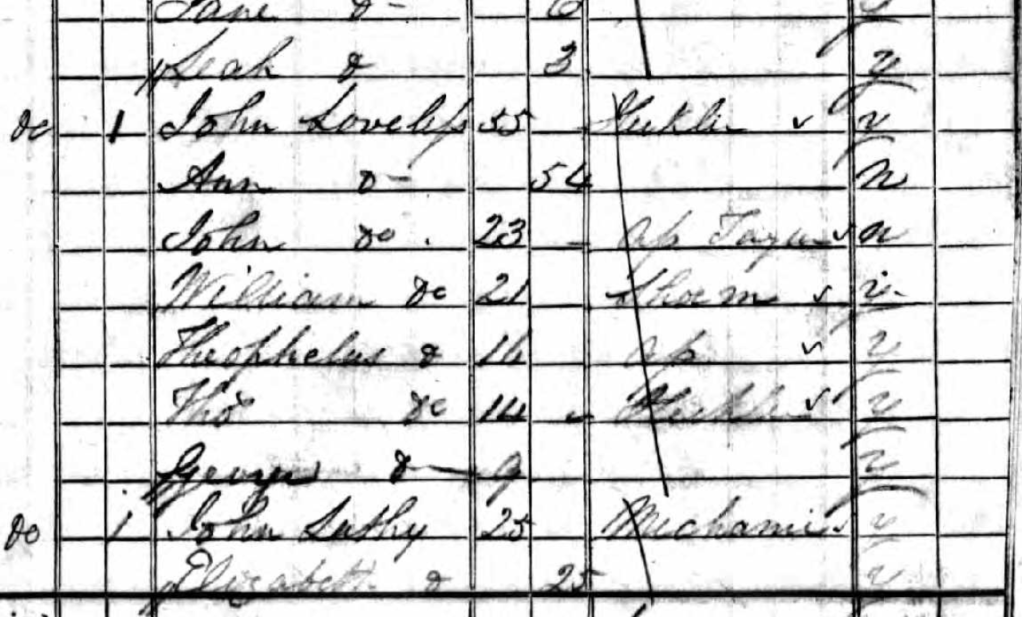 Jane do 6 y
Leah do 3 y
do 1 John Loveless 55 y
Ann do 54 n
John do 23 Ap n
William do 21 Shoem y
Theophelus do 16 Ap y
Thos do 14 y
George do 9 y
do 1 John Luthy 25 Mechanic y
Elizabeth do 25 y